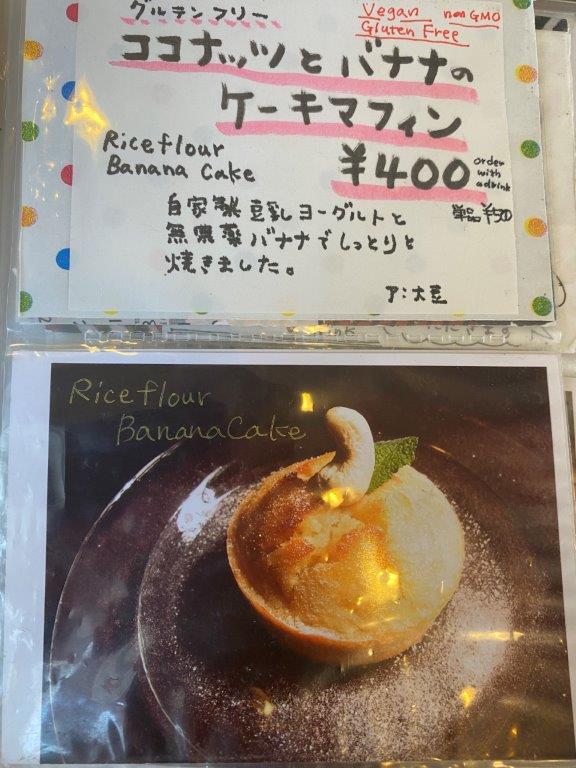 グルテンフリー
Vegan non GMO
Gluten Free
ココナッツとバナナの
ケーキマフィン
Rice flour
Banana Cake
¥400
order
with
a drink
自家製豆乳ヨーグルトと
無農薬バナナでしっとりと
焼きました。
ア:大豆
Rice flour
Banana Cake